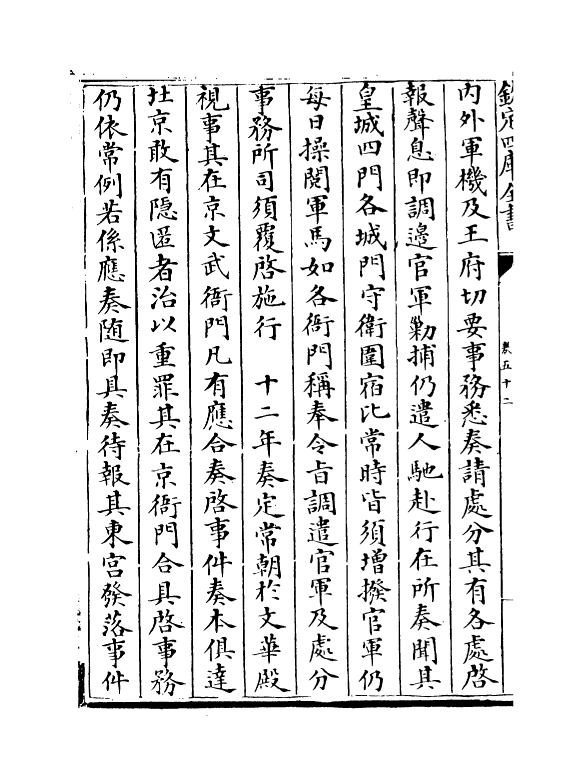 欽定四庫全書
卷五十二
内外軍機及王府切要事務悉奏請處分其有各處啓
報聲息即調邉官軍勦捕仍遣人馳赴行在所奏聞其
皇城四門各城門守衛圍宿比常時皆須增撥官軍仍
每日操閱軍馬如各衙門稱奉令㫖調遣官軍及處分
事務所司須覆啓施行　十二年奏定常朝於文華殿
視事其在京文武衙門凡有應合奏啓事件奏本俱達
在京敢有隠匿者治以重罪其在京衙門合具啓事務
仍依常例若係應奏隨即具奏待報其東宫發落事件